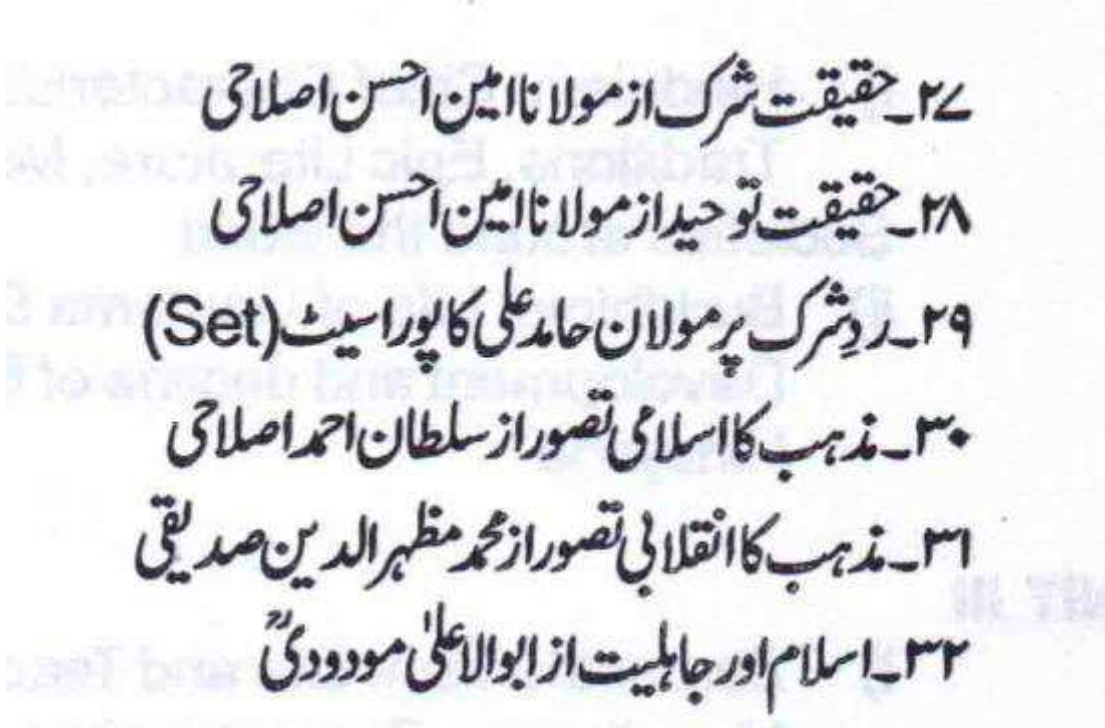 ۲۷۔حقیقت شرک از مولانا امین احسن اصلاحی
۲۸۔حقیقت توحید از مولانا امین احسن اصلاحی
۲۹۔ردِ شرک پر مولان حامد علی کا پورا سیٹ (Set)
۳۰۔مذہب کا اسلامی تصور از سلطان احمد اصلاحی
۳۱۔مذہب کا انقلابی تصور از محمد مظہر الدین صدیقی
۳۲۔اسلام اور جاہلیت از ابوالاعلیٰ مودودیؒ